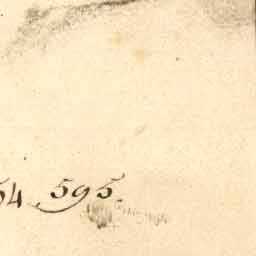 54 595.